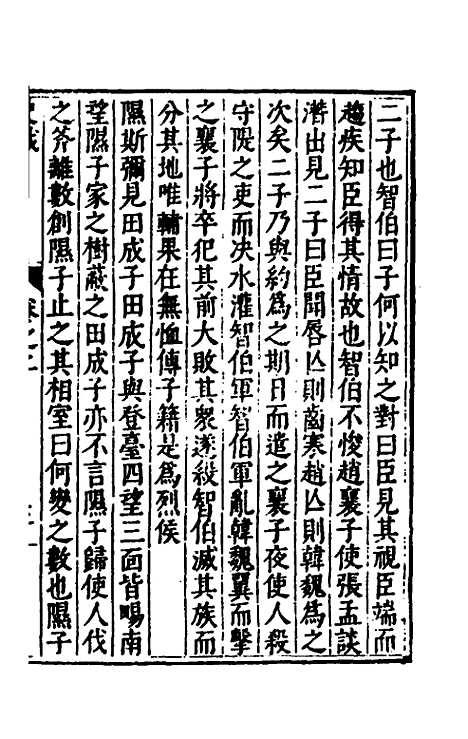 二子也智伯曰子何以知之對曰臣見其視臣端而
趨疾知臣得其情故也智伯不悛趙襄子使張孟談
潛出見二子曰臣聞唇亾則齒寒趙亾則韓魏爲之
次矣二子乃與約爲之期日而遣之襄子夜使人殺
守隄之吏而决水灌智伯軍智伯軍亂韓魏翼而擊
之襄子將卒犯其前大敗其衆遂殺智伯滅其族而
分其地唯輔果在無恤傳子籍是爲烈侯
隰斯彌見田成子田成子與登臺四望三面皆暢南
望隰子家之樹蔽之田成子亦不言隰子歸使人伐
之斧離數創隰子止之其相室曰何變之數也隰子
卷之二